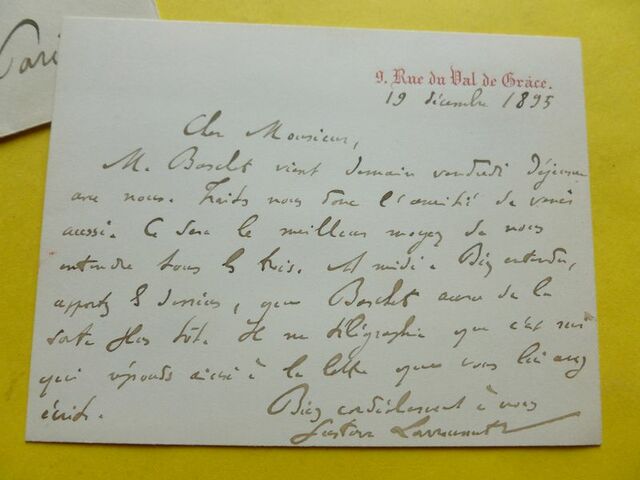 Pari
9. Rue du Val de Grâce.
19 décembre 1895
Cher Monsieur,
M. Baschet vient demain vendredi déjeuner
avec nous. Faites nous donc l'amitié de venir
aussi. Ce sera le meilleur moyen de nous
entendre tous les trois. A midi. Bien entendu,
apportez le dessin, que Baschet aura de la
sorte plus tôt. Il me télégraphie que c'est moi
qui réponds ainsi à la lettre que vous lui avez
écrite.
Bien cordialement à vous
Gustave Larroumet